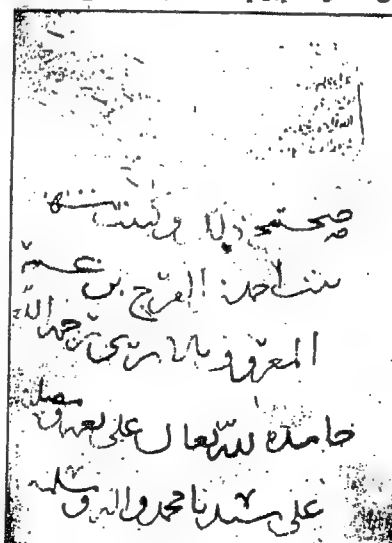 صحيح ذلك وكتبت شهده
بنت احمد بن الفرج بن عمر
المعروف بالابري رحمه الله
حامده لله تعالى على نعمه ومصليه
على سيدنا محمد واله ومسلمه